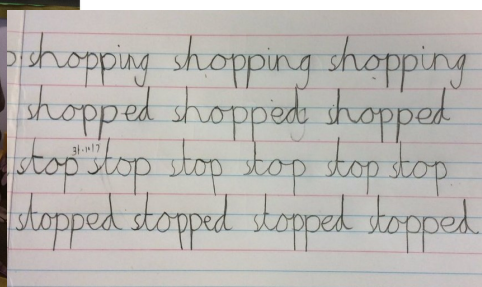 shopping shopping shopping
shopped shopped shopped
stop stop stop stop stop stop
stopped stopped stopped stopped